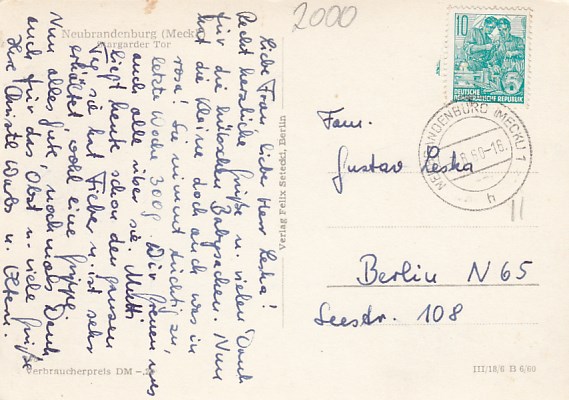 Neubrandenburg (Meckl)
Stargarder Tor
Liebe Frau, lieber Herr Leska!
Recht herzliche Grüße u. vielen Dank
für die hübschen Babysachen. Nun
hat die Kleine doch auch was in
rosa! Sie nimmt tüchtig zu,
letzte Woche 300g. Wir freuen uns
auch alle über sie. Mutti
liegt heute schon den ganzen
Tag, sie hat Fieber u. ist sehr
erkältet, wohl eine Grippe.
Nun alles gute, nochmals Dank
auch für das Obst u. viele Grüße
Ihre Christel u. Eltern.
Verbraucherpreis DM -,
Verlag Felix Setecki, Berlin
2000
10
5
DEUTSCHE
DEMOKRATISCHE REPUBLIK
NEUBRANDENBURG (MECKL) 1
8.60-16
h
Fam.
Gustav Leska
Berlin N 65
Seestr. 108
11
III/18/6 B 6/60